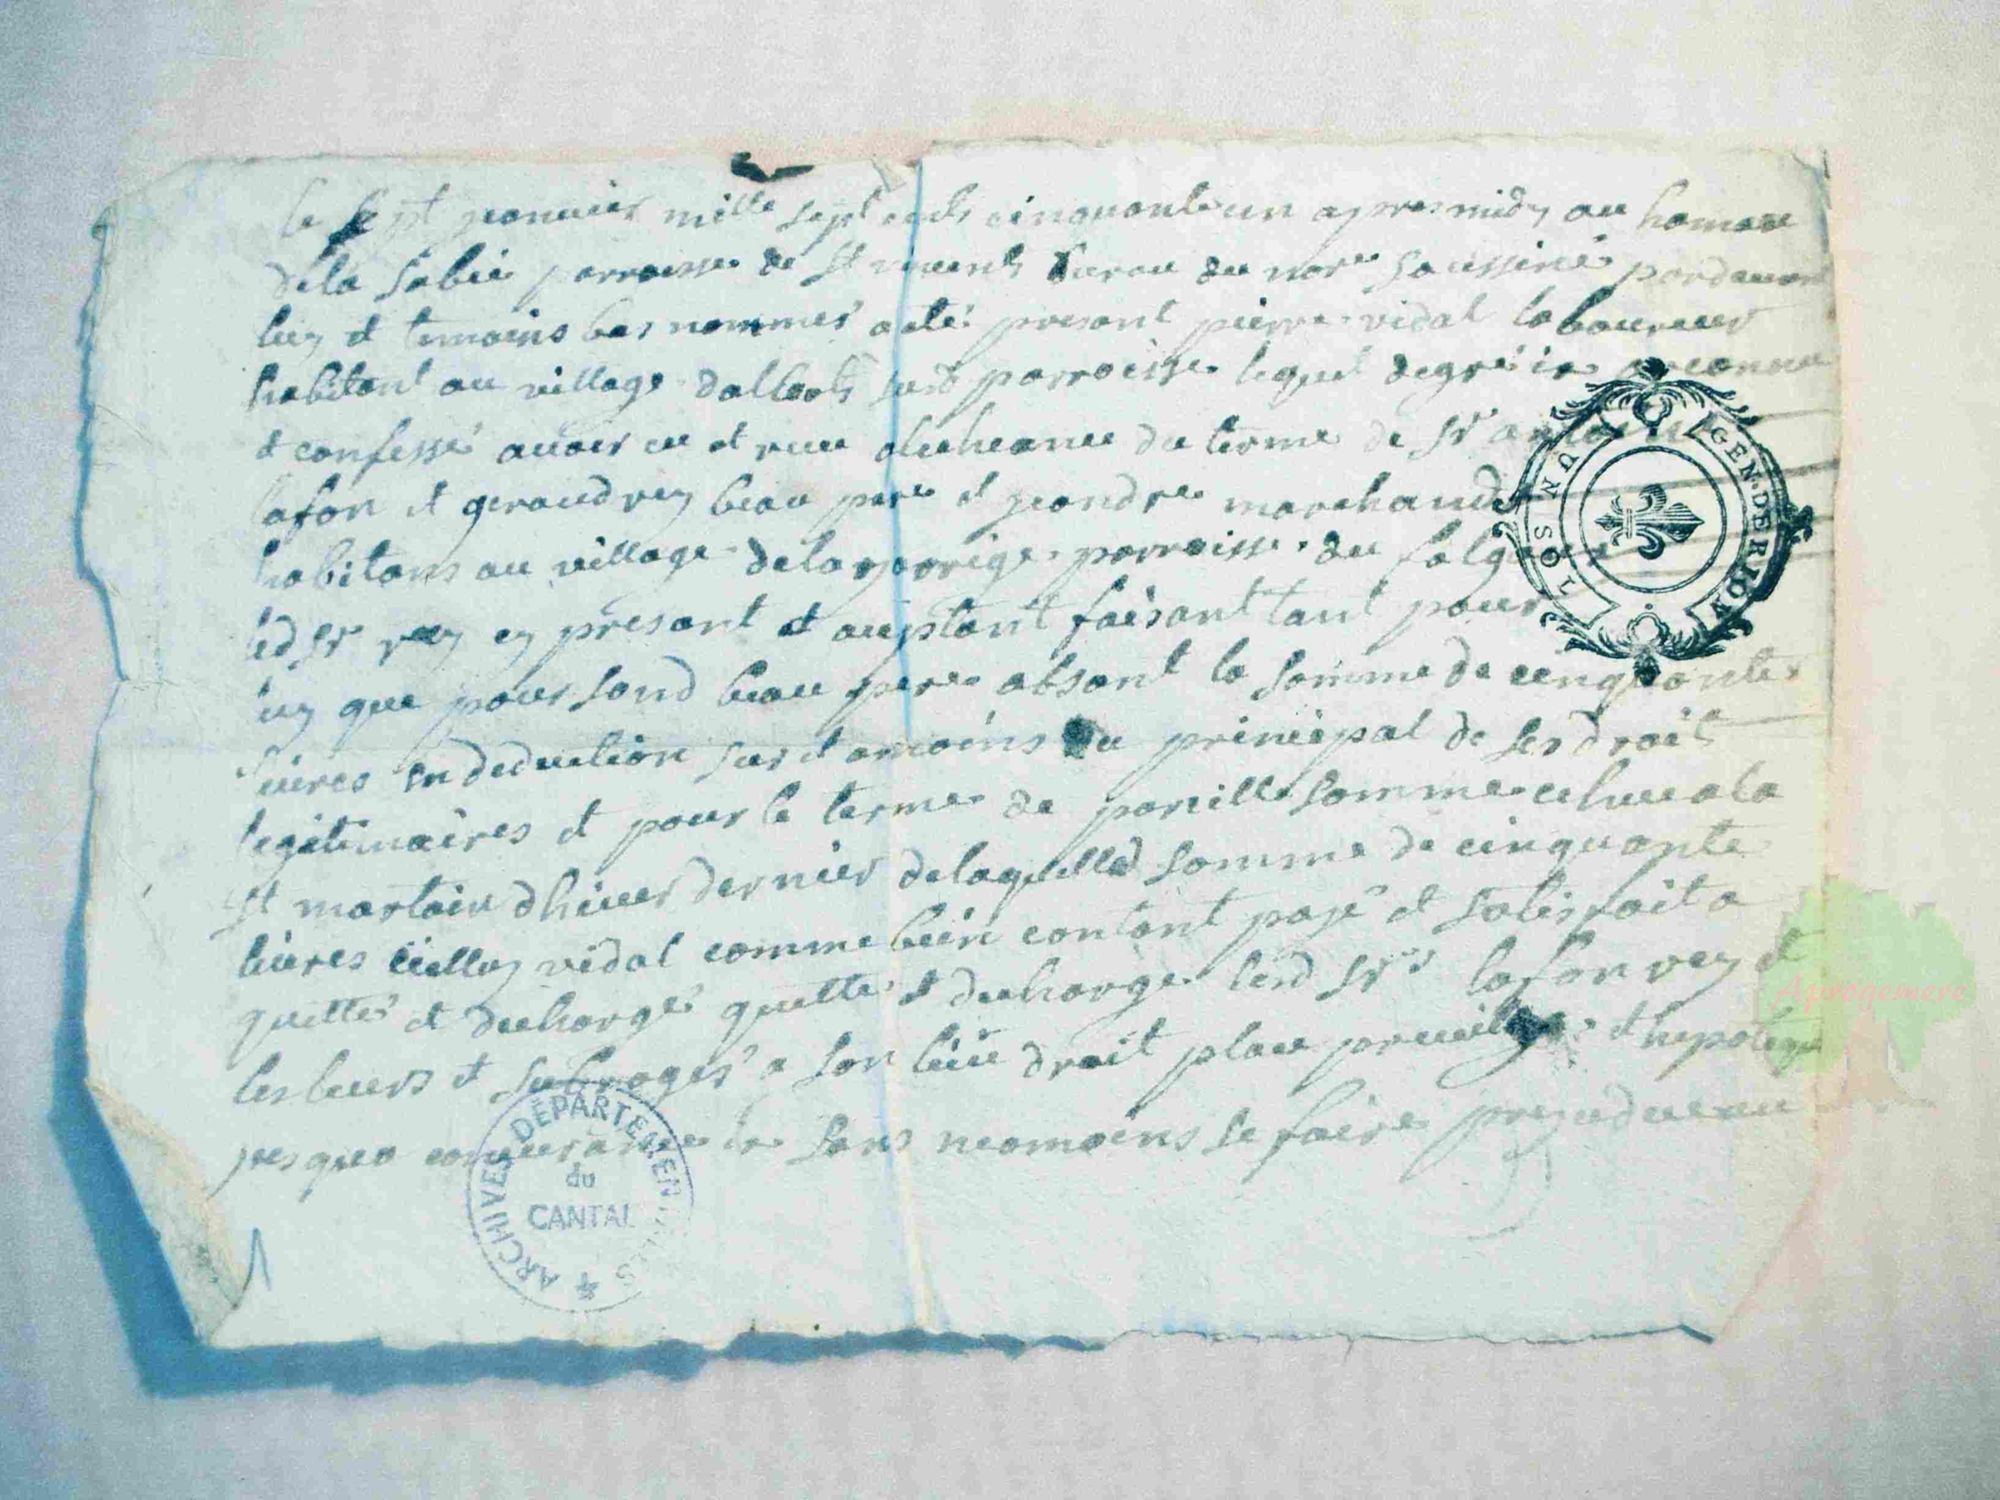 le sept janvier mille sept cents cinquante un apres midy au hameau
de la Sabie parroisse de St vincent bureau du nore par devant
luy et temoins bas nommes a eté presant pierre vidal laboureur
habitant au village parroisse lequel de gré a reconnu
et confessé avoir eu et receu du terme de Sr
lafon et geraud rey beau pere et jeandre marchands
habitans au village de la jarrige parroisse du falgoux
led Sr rey ey presant et aceptant faisant tant pour
luy que pour sond beau pere absant la somme de cinquante
livres en deduction sur et amoins du principal de ses droit
legitimaires et pour le terme de pareille somme echue a la
St martain dhiver dernier de laquelle somme de cinquante
livres icelluy vidal comme bien contant payé et satisfait a
quitté et decharge quitte et decharge lesd Srs lafon rey et
les leurs et subroges a son lieu droit place previlege et hypoteque
jusques concurance sans neomoins se faire prejudice au
GEN. DE RIOM
UN SOL
ARCHIVES DÉPARTEMENTALES
du
CANTAL
Aprogemere